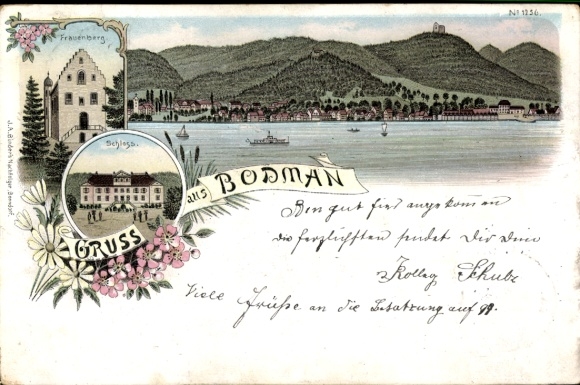 No 1256.
Frauenberg.
Schloss.
GRUSS
aus BODMAN
J.A. Binder's Nachfolger
Bin gut hier angekommen
die herzlichsten sendet Dir Dein
Kolleg Schulz
Viele Grüße an die Besatzung auf